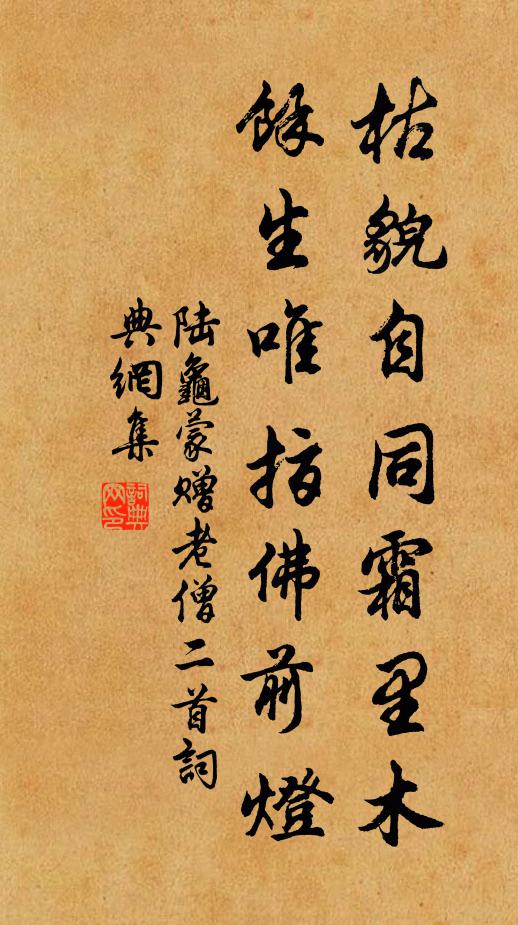 枯貌自同霜里木
餘生唯指佛前燈
陸龜蒙贈老僧二首詞
典網集
詞典网印